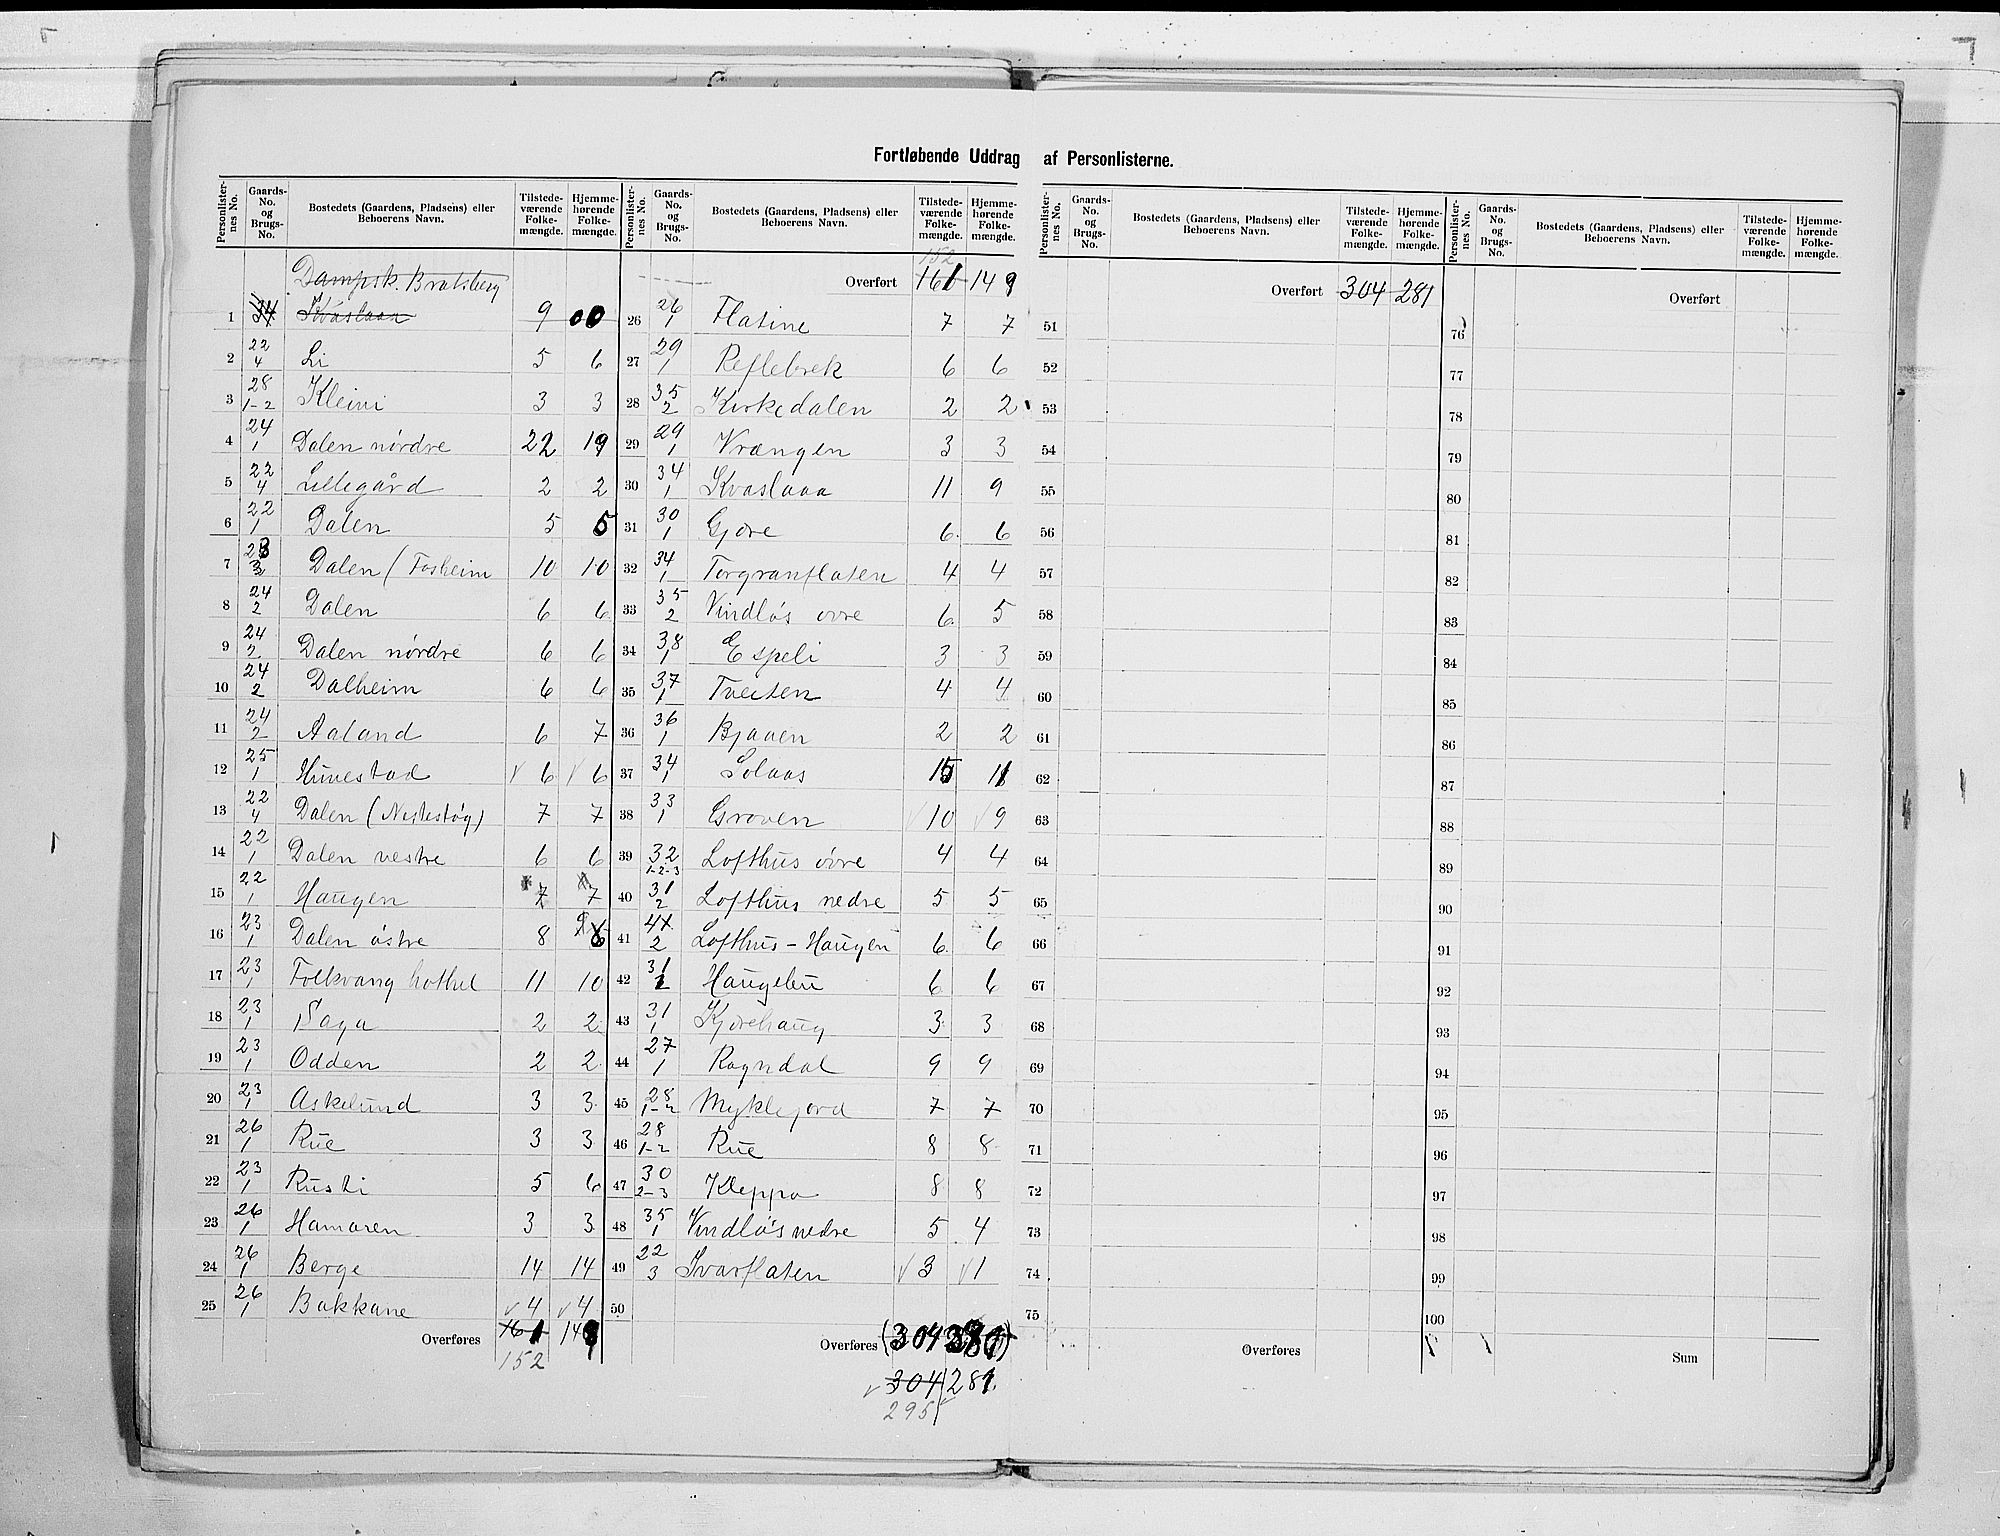 Fortløbende Uddrag af Personlisterne.
Personlisternes No. Gaards-No. og Brugs-No. Bostedets (Gaardens, Pladsens) eller Beboerens Navn. Tilstedeværende Folkemængde. Hjemmehørende Folkemængde.
Dampsk. Bratsberg
1 34 Kvaslaaa 9 00
2 22/4 Li 5 6
3 28/1-2 Kleivi 3 3
4 24/1 Dalen nórdre 22 19
5 22/4 Lillegård 2 2
6 22/1 Dalen 5 5
7 23/3 Dalen (Fosheim 10 10
8 24/2 Dalen 6 6
9 24/2 Dalen nórdre 6 6
10 24/2 Dalheim 6 6
11 24/2 Aaland 6 7
12 25/1 Hunestad 6 6
13 22/4 Dalen (Nistestøg) 7 7
14 22/1 Dalen vestre 6 6
15 22/1 Haugen 7 7
16 23/1 Dalen óstre 8 6
17 23/1 Folkvang hothel 11 10
18 23/1 Saga 2 2
19 23/1 Odden 2 2
20 23/1 Askelund 3 3
21 26/1 Rue 3 3
22 23/1 Rusti 5 6
23 26/1 Hamaren 3 3
24 26/1 Berge 14 14
25 26/1 Bakkane 4 4
Overføres 161 149
152
Personlisternes No. Gaards-No. og Brugs-No. Bostedets (Gaardens, Pladsens) eller Beboerens Navn. Tilstedeværende Folkemængde. Hjemmehørende Folkemængde.
152
Overført 161 149
26 26/1 Flatine 7 7
27 29/1 Reflebrek 6 6
28 35/2 Kirkedalen 2 2
29 29/1 Vrængen 3 3
30 34/1 Kvaslaaa 11 9
31 30/1 Gjøre 6 6
32 34/1 Torgranflaten 4 4
33 35/2 Vindlós ovre 6 5
34 38/1 Espeli 3 3
35 37/1 Tveiten 4 4
36 36/1 Bjaaen 2 2
37 34/1 Solaas 15 11
38 33/1 Groven 10 9
39 32/1-2-3 Lofthus óvre 4 4
40 31/2 Lofthus nedre 5 5
41 2 Lofthus-Haugen 6 6
42 31 Haugelen 6 6
43 31/1 Kjørehaug 3 3
44 27/1 Rogndal 9 9
45 28/1-2 Myklejord 7 7
46 28/1-2 Rue 8 8
47 30/2-3 Kleppo 8 8
48 35/1 Vindlós nedre 5 4
49 22/3 Ivarflaten 3 1
50
Overføres (304 281)
304 281
295
Personlisternes No. Gaards-No. og Brugs-No. Bostedets (Gaardens, Pladsens) eller Beboerens Navn. Tilstedeværende Folkemængde. Hjemmehørende Folkemængde.
Overført 304 281
51
52
53
54
55
56
57
58
59
60
61
62
63
64
65
66
67
68
69
70
71
72
73
74
75
Overføres
Personlisternes No. Gaards-No. og Brugs-No. Bostedets (Gaardens, Pladsens) eller Beboerens Navn. Tilstedeværende Folkemængde. Hjemmehørende Folkemængde.
Overført
76
77
78
79
80
81
82
83
84
85
86
87
88
89
90
91
92
93
94
95
96
97
98
99
100
Sum